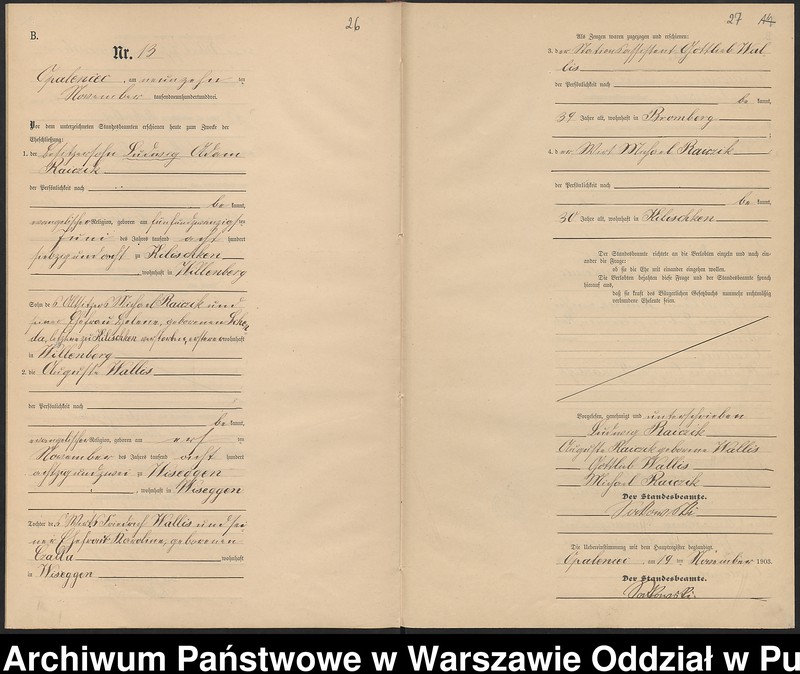 26
B.
Nr. 13
Opaleniec, am neunzehn ten
November tausendneunhundertunddrei.
Vor dem unterzeichneten Standesbeamten erschienen heute zum Zwecke der
Eheschließung:
1. der Besitzersohn Ludwig Adam
Rawzik
der Persönlichkeit nach
be kannt,
evangelischer Religion, geboren am fünfundzwanzigsten
Juni des Jahres tausend acht hundert
siebzigundacht zu Kelischken
, wohnhaft in Willenberg
Sohn des Altsitzers Michael Rawzik und
seiner Ehefrau Helene, geborenen
letztere zu Kelischken verstorben, ersterer wohnhaft
in Willenberg
2. die Auguste Wallis
der Persönlichkeit nach
be kannt,
evangelischer Religion, geboren am elf ten
November des Jahres tausend acht hundert
achtzigundzwei zu Wiseggen
, wohnhaft in Wiseggen
Tochter des Wirts Friedrich Wallis und sei
ner Ehefrau Karoline, geborenen
Czalla wohnhaft
in Wiseggen
27
Als Zeugen waren zugezogen und erschienen:
3. der Stationsassistent Gottlieb Wal
lis
der Persönlichkeit nach
be kannt,
34 Jahre alt, wohnhaft in Bromberg
4. der Wirt Michael Rawzik
der Persönlichkeit nach
be kannt,
30 Jahre alt, wohnhaft in Kelischken
Der Standesbeamte richtete an die Verlobten einzeln und nach ein-
ander die Frage:
ob sie die Ehe mit einander eingehen wollen.
Die Verlobten bejahten diese Frage und der Standesbeamte sprach
hierauf aus,
daß sie kraft des Bürgerlichen Gesetzbuchs nunmehr rechtmäßig
verbundene Eheleute seien.
Vorgelesen, genehmigt und unterschrieben
Ludwig Rawzik
Auguste Rawzik geborene Wallis
Gottlieb Wallis
Michael Rawzik
Der Standesbeamte.
Die Uebereinstimmung mit dem Hauptregister beglaubigt.
Opaleniec, am 19 ten November 1903.
Der Standesbeamte.
Archiwum Państwowe w Warszawie Oddział w Pu